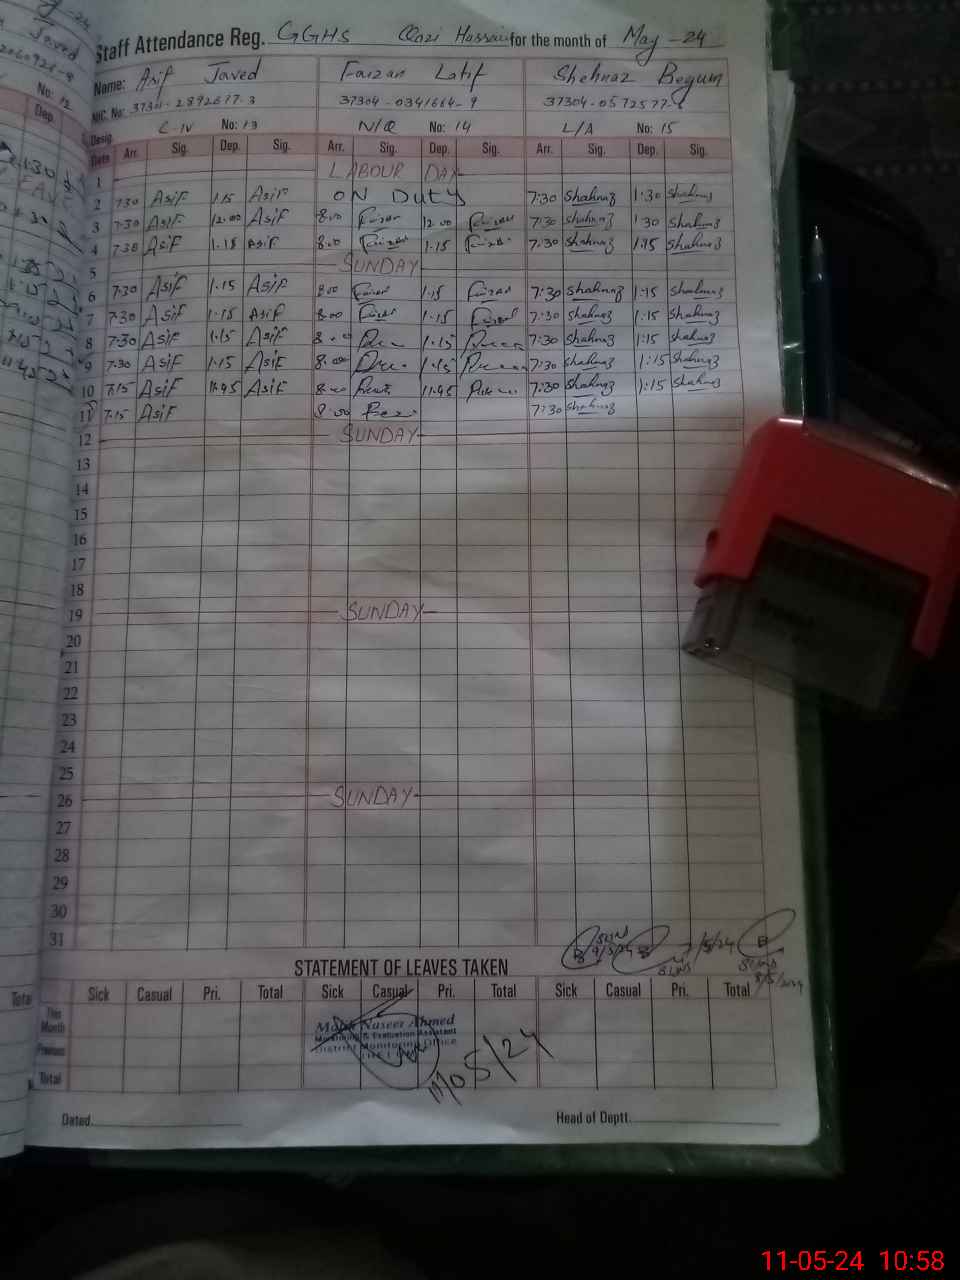 Staff Attendance Reg. GGHS Qazi Hassan for the month of May - 24
Name: Asif Javed Faizan Latif Shehnaz Begum
NIC. No: 37301-2892677-3 37304-0341664-9 37304-0572577-
Desig. C-IV No: 13 N/Q No: 14 L/A No: 15
Date Arr. Sig. Dep. Sig. Arr. Sig. Dep. Sig. Arr. Sig. Dep. Sig.
1 LABOUR DAY
2 7:30 Asif 1.15 Asif ON Duty 7:30 Shahnaz 1:30 Shahnaz
3 7:30 Asif 12.00 Asif 8.00 Faizan 12.00 Faizan 7:30 Shahnaz 1:30 Shahnaz
4 7:30 Asif 1.15 Asif 8.00 Faizan 1.15 Faizan 7:30 Shahnaz 1:15 Shahnaz
5 SUNDAY
6 7:30 Asif 1.15 Asif 8.00 Faizan 1.15 Faizan 7:30 Shahnaz 1:15 Shahnaz
7 7:30 Asif 1.15 Asif 8.00 Faizan 1.15 Faizan 7:30 Shahnaz 1:15 Shahnaz
8 7:30 Asif 1.15 Asif 8.00 1.15 7:30 Shahnaz 1:15 Shahnaz
9 7:30 Asif 1.15 Asif 8.00 1.15 7:30 Shahnaz 1:15 Shahnaz
10 7:15 Asif 11.45 Asif 8.00 11.45 7:30 Shahnaz 1:15 Shahnaz
11 7:15 Asif 8.00 7:30 Shahnaz
12 SUNDAY
13
14
15
16
17
18
19 SUNDAY
20
21
22
23
24
25
26 SUNDAY
27
28
29
30
31
STATEMENT OF LEAVES TAKEN
Sick Casual Pri. Total Sick Casual Pri. Total Sick Casual Pri. Total
This Month
Previous
Total
Malik Naseer Ahmed
Monitoring & Evaluation Assistant
District Monitoring Office
11/05/24
Dated. Head of Deptt.
11-05-24 10:58